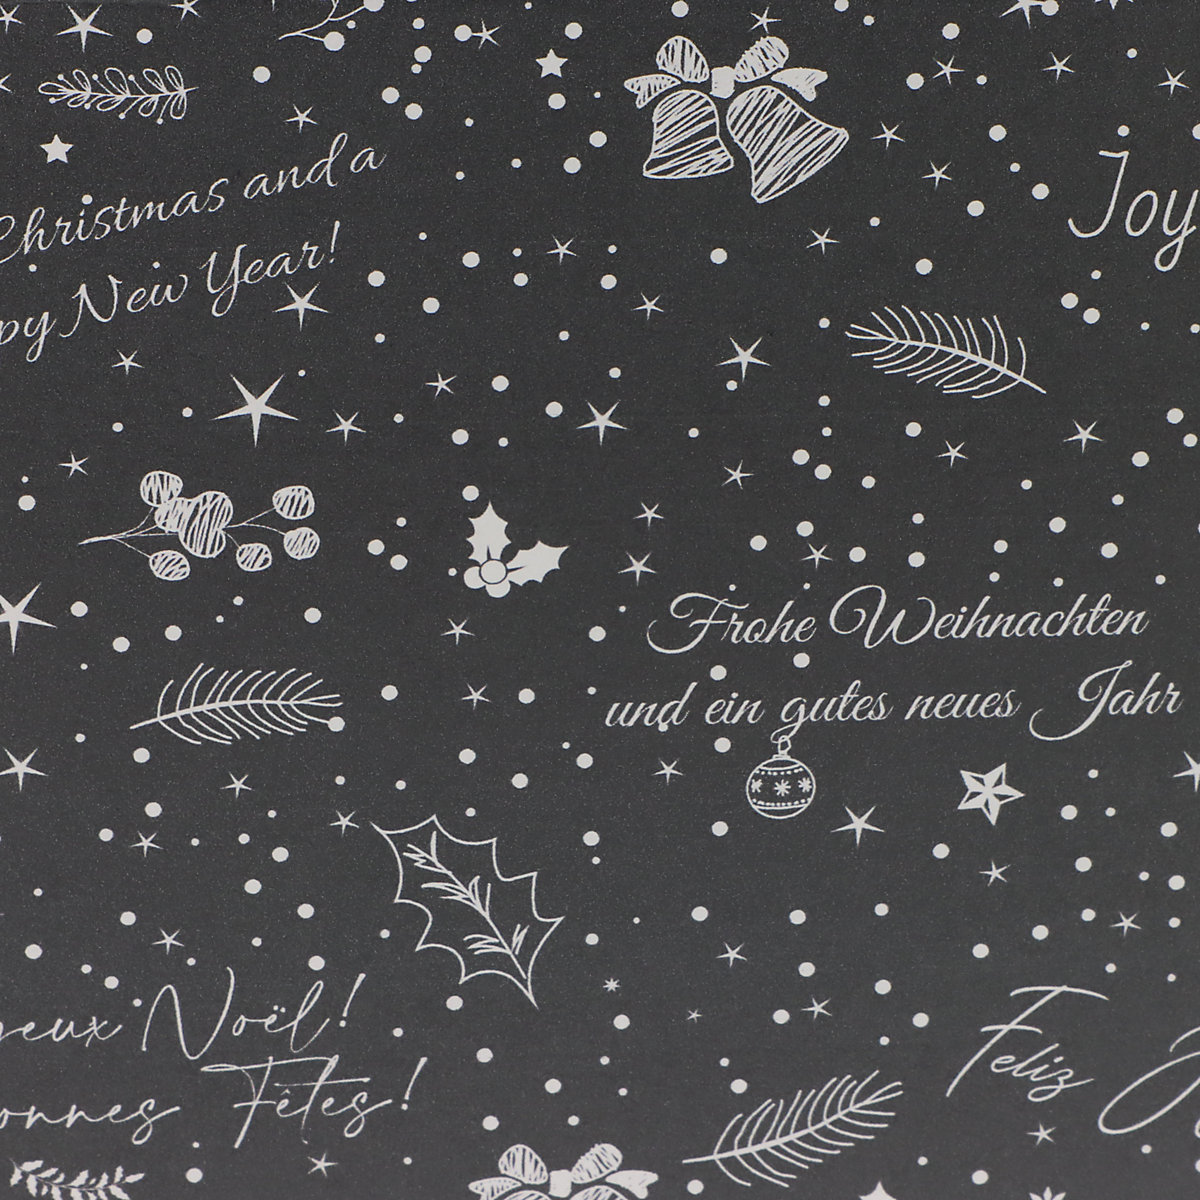 Christmas and a
py New Year!
Joy
Frohe Weihnachten
und ein gutes neues Jahr
yeux Noël!
onnes Fêtes!
Feliz